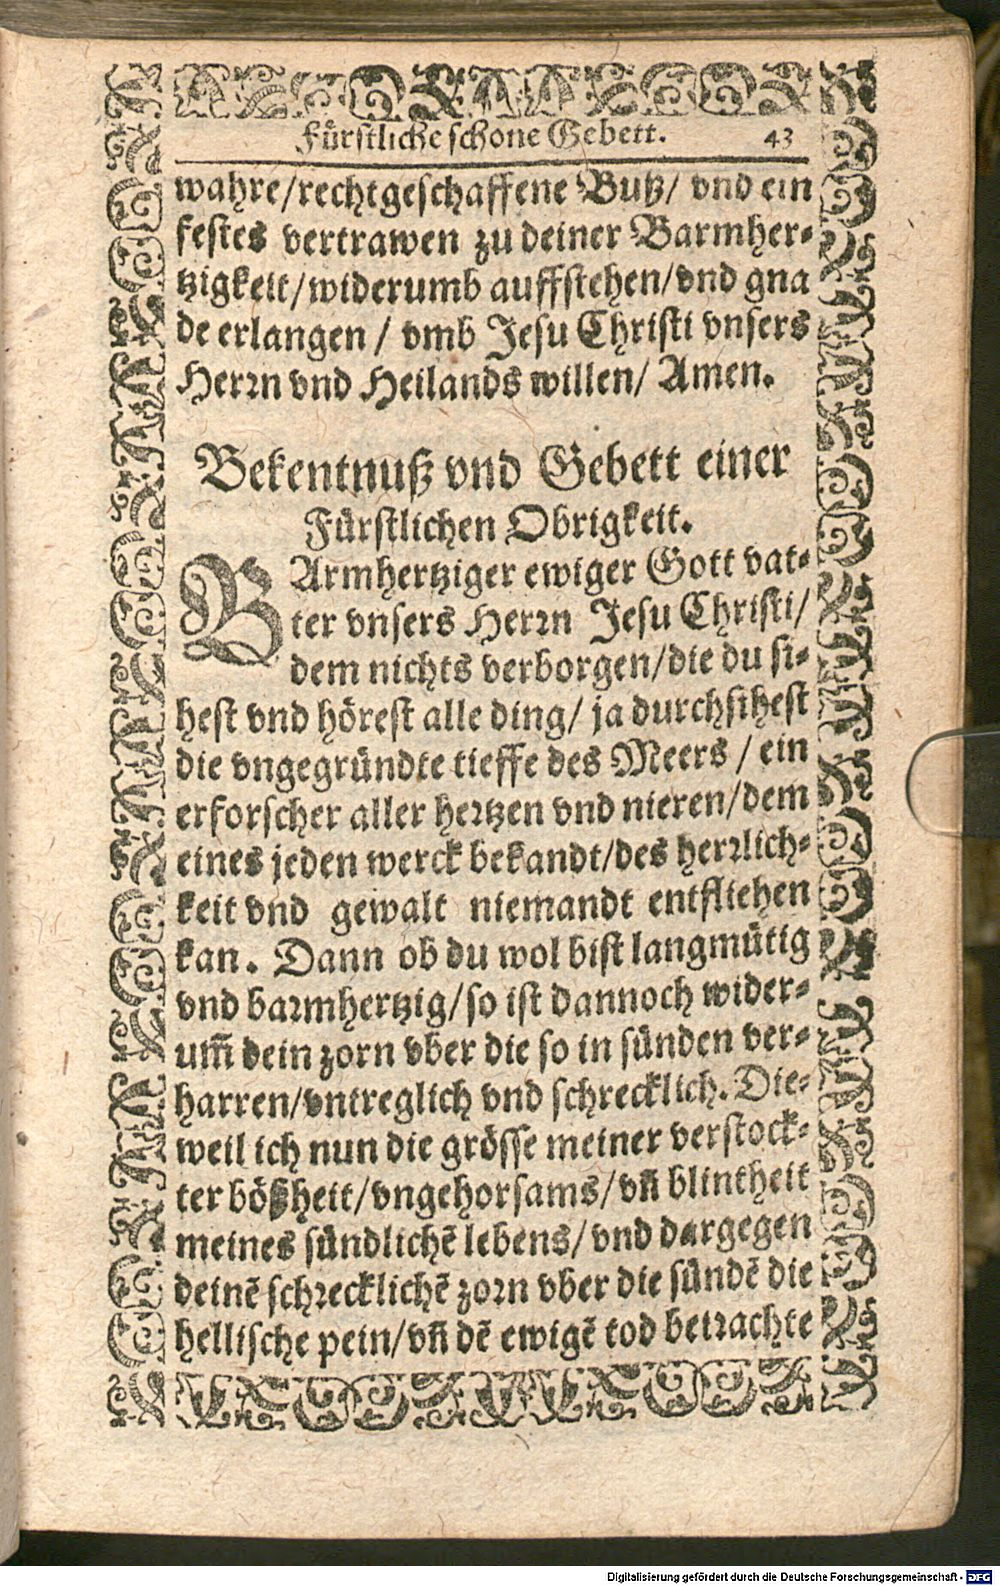 Fürstliche schone Gebett. 43
wahre/rechtgeschaffene Butz/ vnd ein
festes vertrawen zu deiner Barmher-
tzigkeit/widerumb auffstehen/vnd gna
de erlangen / vmb Jesu Christi vnsers
Herrn vnd Heilands willen/ Amen.
Bekentnuß vnd Gebett einer
Fürstlichen Obrigkeit.
BArmhertziger ewiger Gott vat-
ter vnsers Herrn Jesu Christi/
dem nichts verborgen/die du si-
hest vnd hörest alle ding/ ja durchsihest
die vngegründte tieffe des Meers / ein
erforscher aller hertzen vnd nieren/dem
eines jeden werck bekandt/des herrlich-
keit vnd gewalt niemandt entfliehen
kan. Dann ob du wol bist langmütig
vnd barmhertzig/so ist dannoch wider-
um̄ dein zorn vber die so in sünden ver-
harren/vntreglich vnd schrecklich. Die-
weil ich nun die grösse meiner verstock-
ter bößheit/vngehorsams/vn̄ blintheit
meines sündlichē lebens/vnd dargegen
deinē schrecklichē zorn vber die sündē die
hellische pein/vn̄ dē ewigē tod betrachte
Digitalisierung gefördert durch die Deutsche Forschungsgemeinschaft - DFG